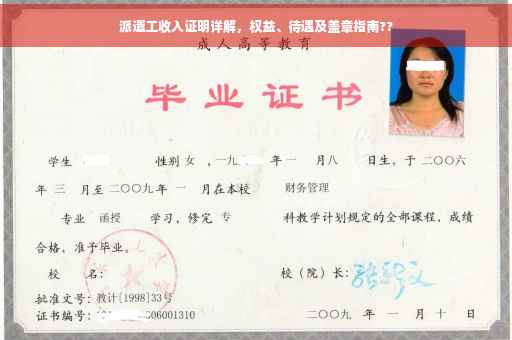 派遣工收入证明详解，权益、待遇及盖章指南??
成人高等教育
毕业证书
学生 性别 女 ，一九 年 一 月八 日生，于 二〇〇六
年 三 月至 二〇〇九年 一 月在本校 财务管理
专业 函授 学习，修完 专 科教学计划规定的全部课程，成绩
合格，准予毕业。
校 名： 校（院）长：
批准文号：教计[1998]33号
证书编号： 06001310 二〇〇九 年 一 月 十 日